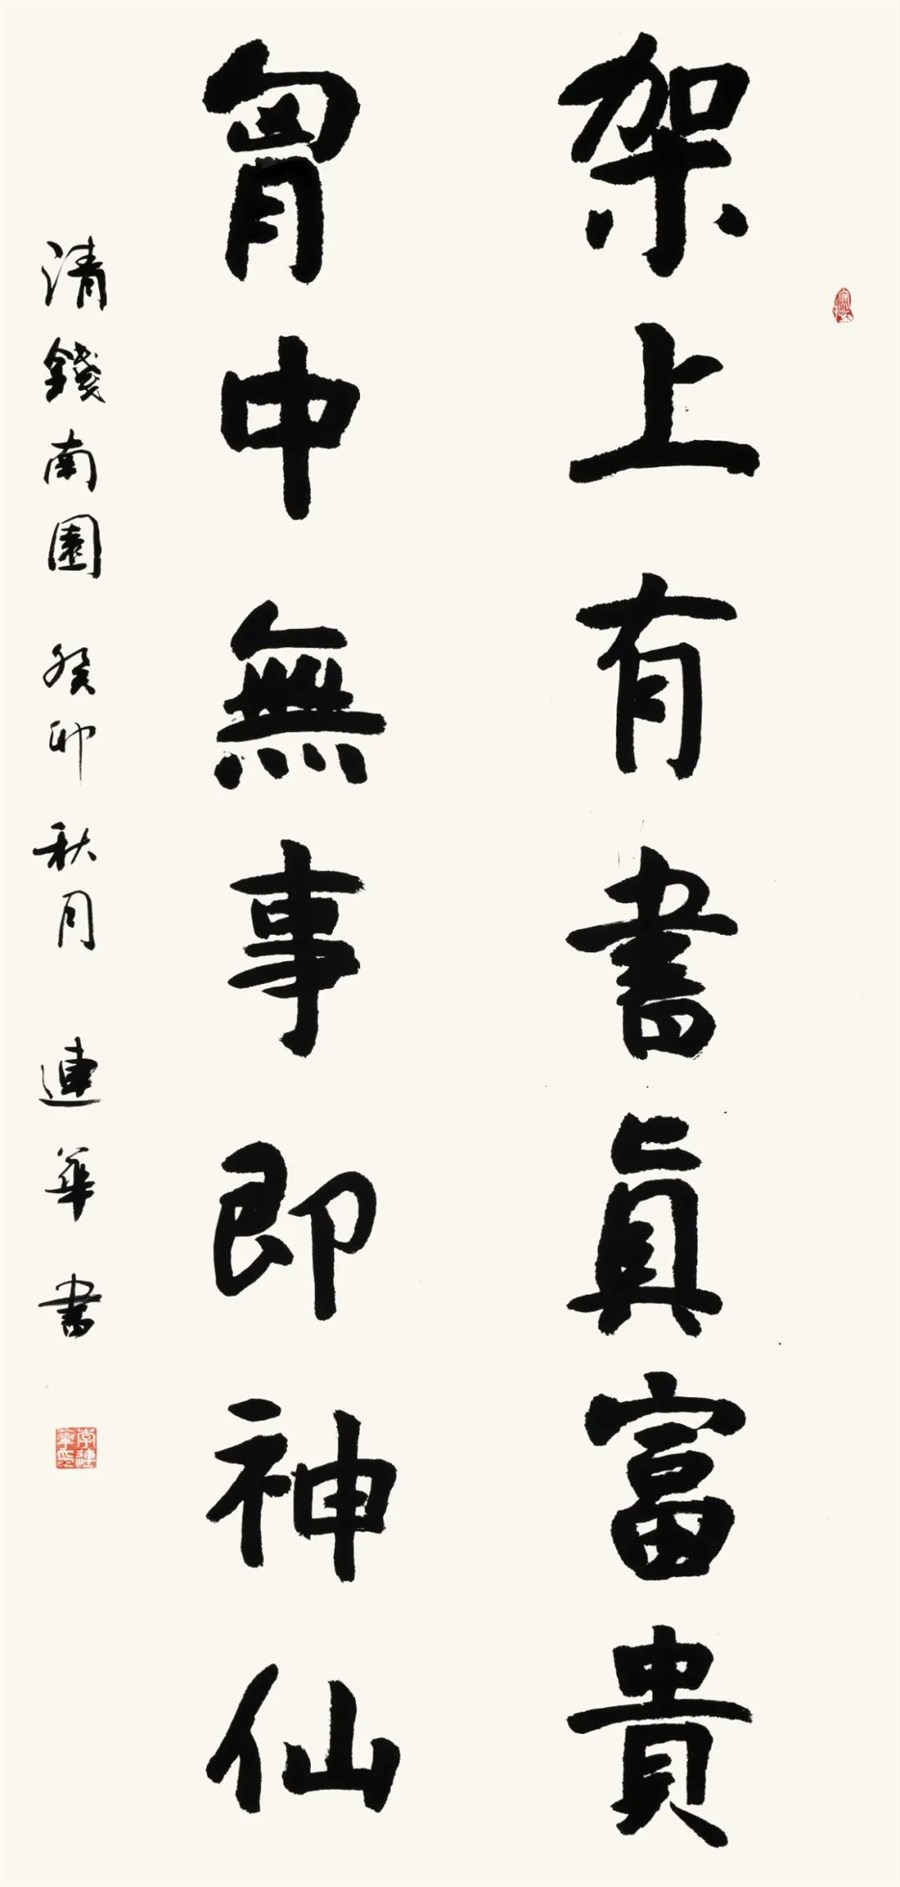 架上有書真富貴
胷中無事即神仙
清錢南園 癸卯秋月 連華書